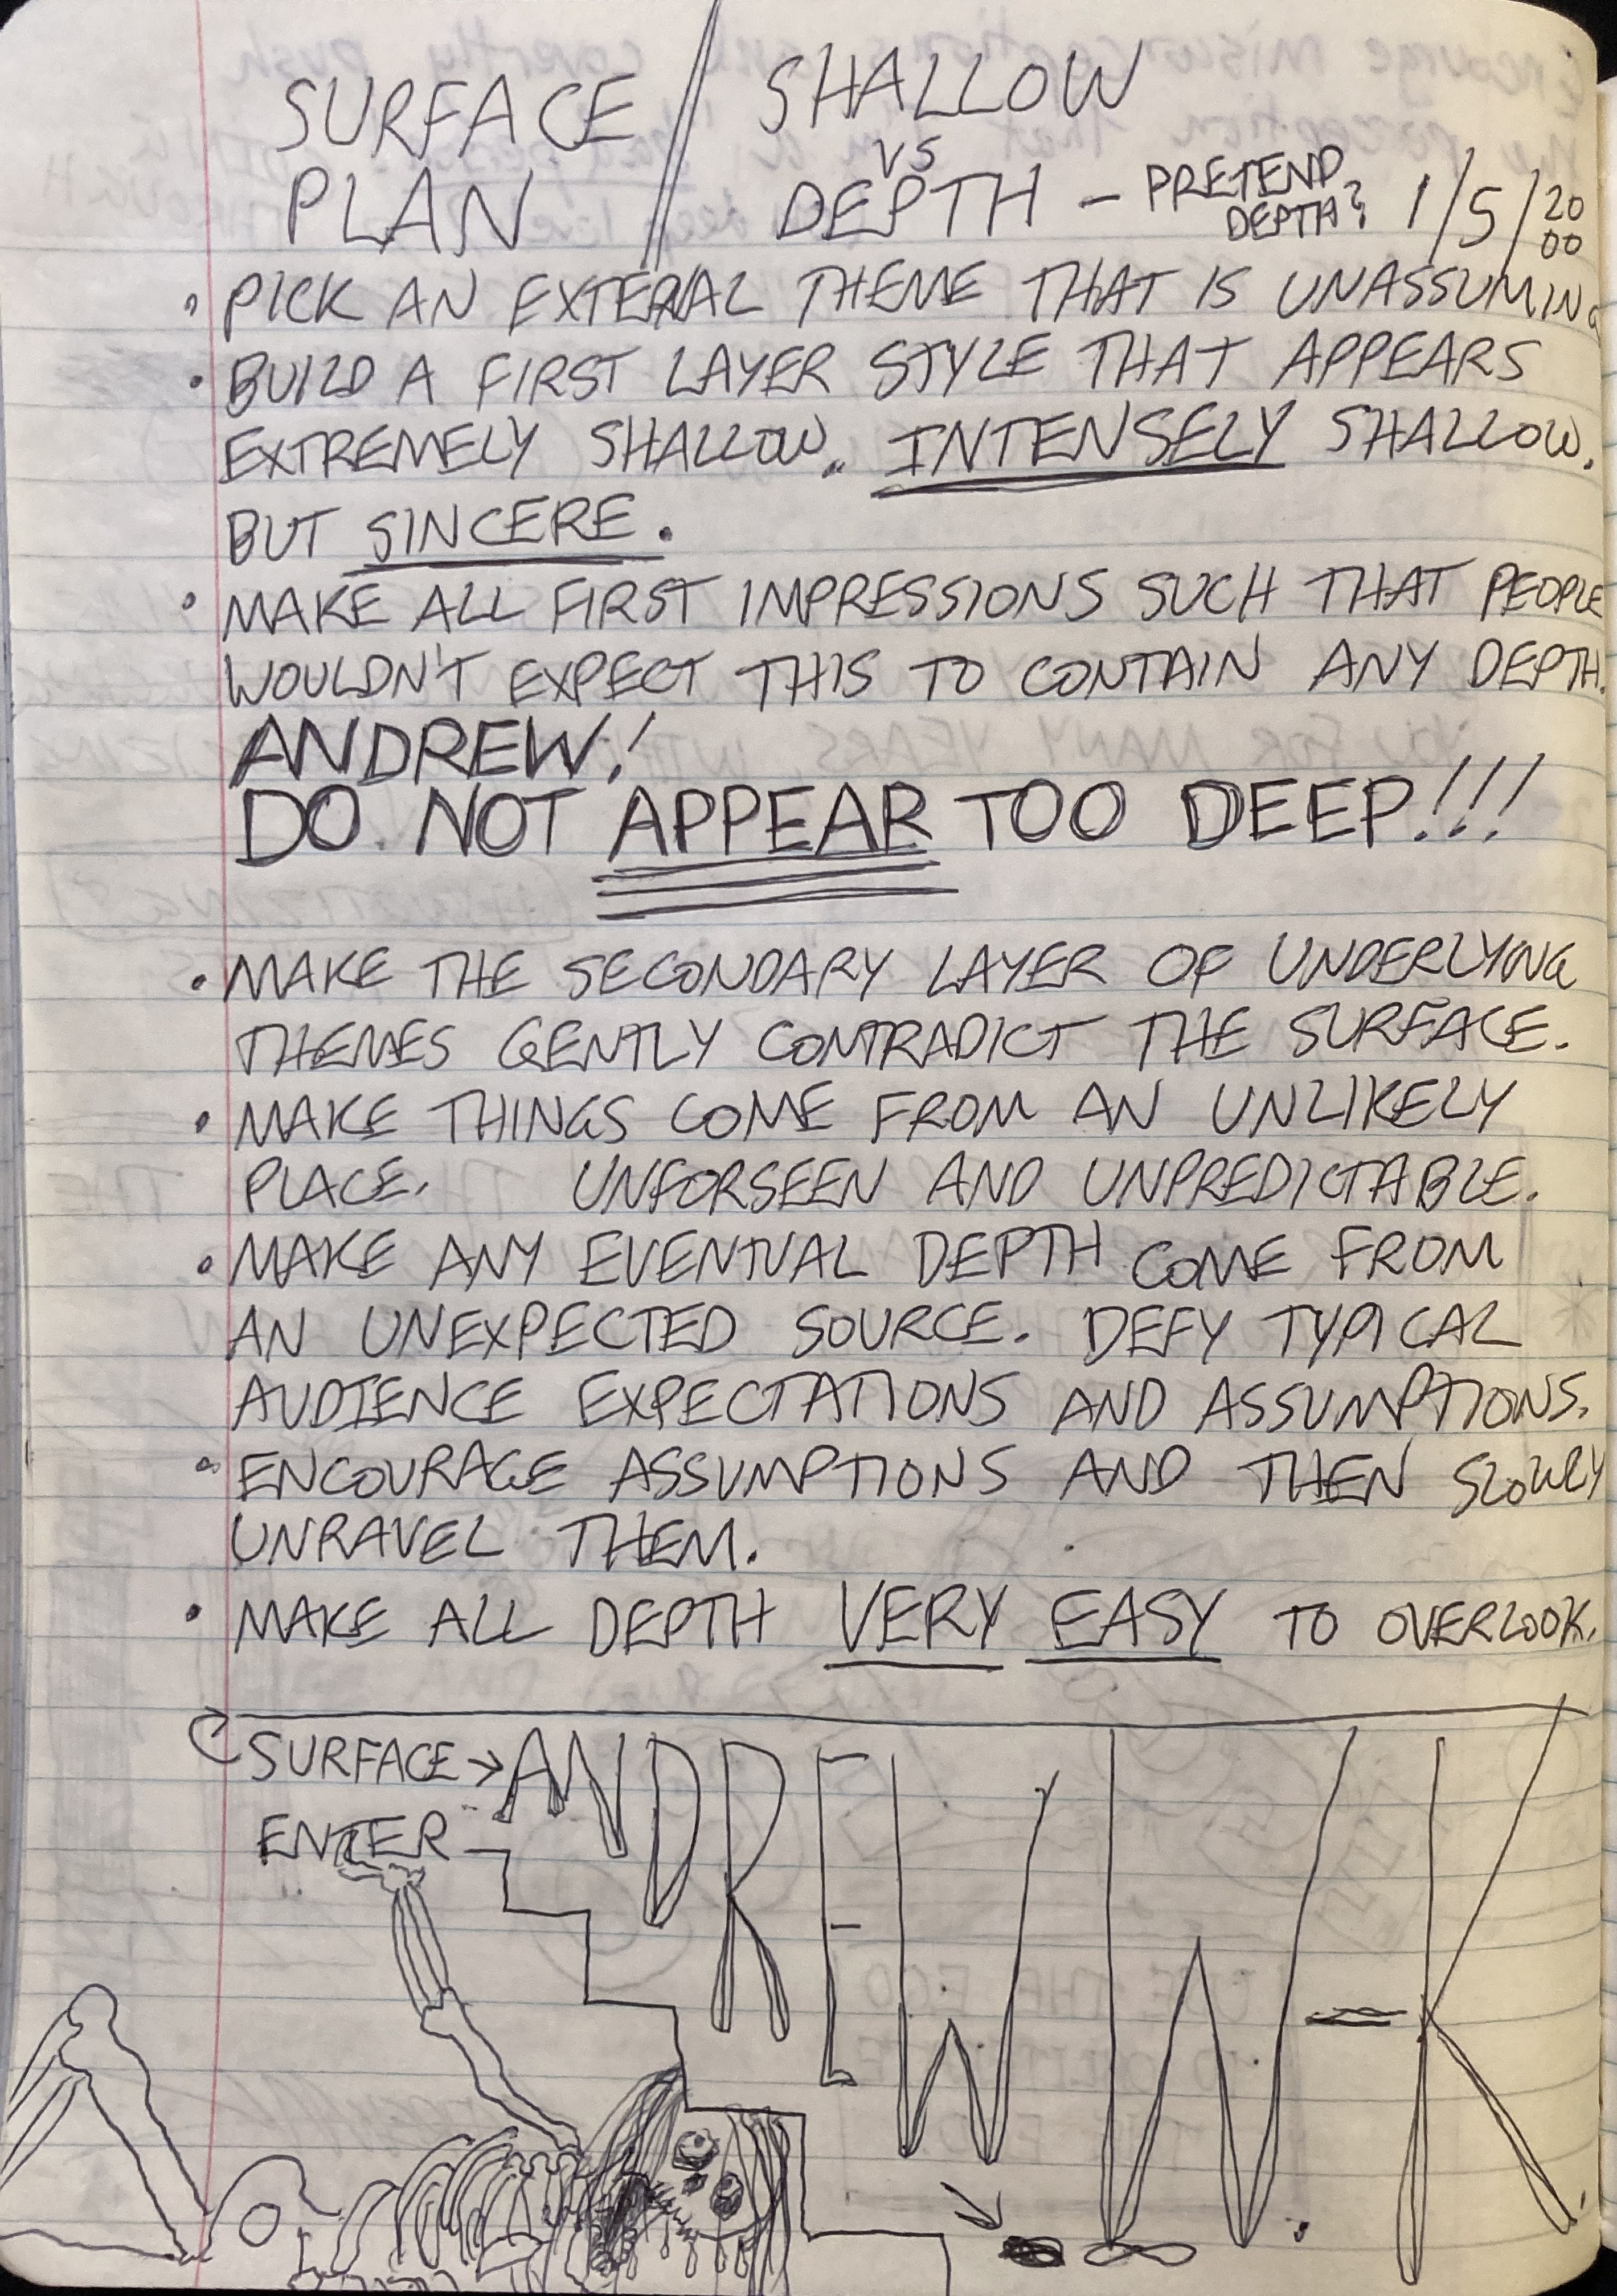 SURFACE
PLAN
SHALLOW
VS
DEPTH - PRETEND
DEPTH? 1/5/20
00
• PICK AN EXTERNAL THEME THAT IS UNASSUMING
• BUILD A FIRST LAYER STYLE THAT APPEARS
EXTREMELY SHALLOW.. INTENSELY SHALLOW.
BUT SINCERE.
• MAKE ALL FIRST IMPRESSIONS SUCH THAT PEOPLE
WOULDN'T EXPECT THIS TO CONTAIN ANY DEPTH.
ANDREW!
DO NOT APPEAR TOO DEEP!!!
• MAKE THE SECONDARY LAYER OF UNDERLYING
THEMES GENTLY CONTRADICT THE SURFACE.
• MAKE THINGS COME FROM AN UNLIKELY
PLACE. UNFORSEEN AND UNPREDICTABLE.
• MAKE ANY EVENTUAL DEPTH COME FROM
AN UNEXPECTED SOURCE. DEFY TYPICAL
AUDIENCE EXPECTATIONS AND ASSUMPTIONS.
• ENCOURAGE ASSUMPTIONS AND THEN SLOWLY
UNRAVEL THEM.
• MAKE ALL DEPTH VERY EASY TO OVERLOOK.
SURFACE → ANDREW W-K
ENTER